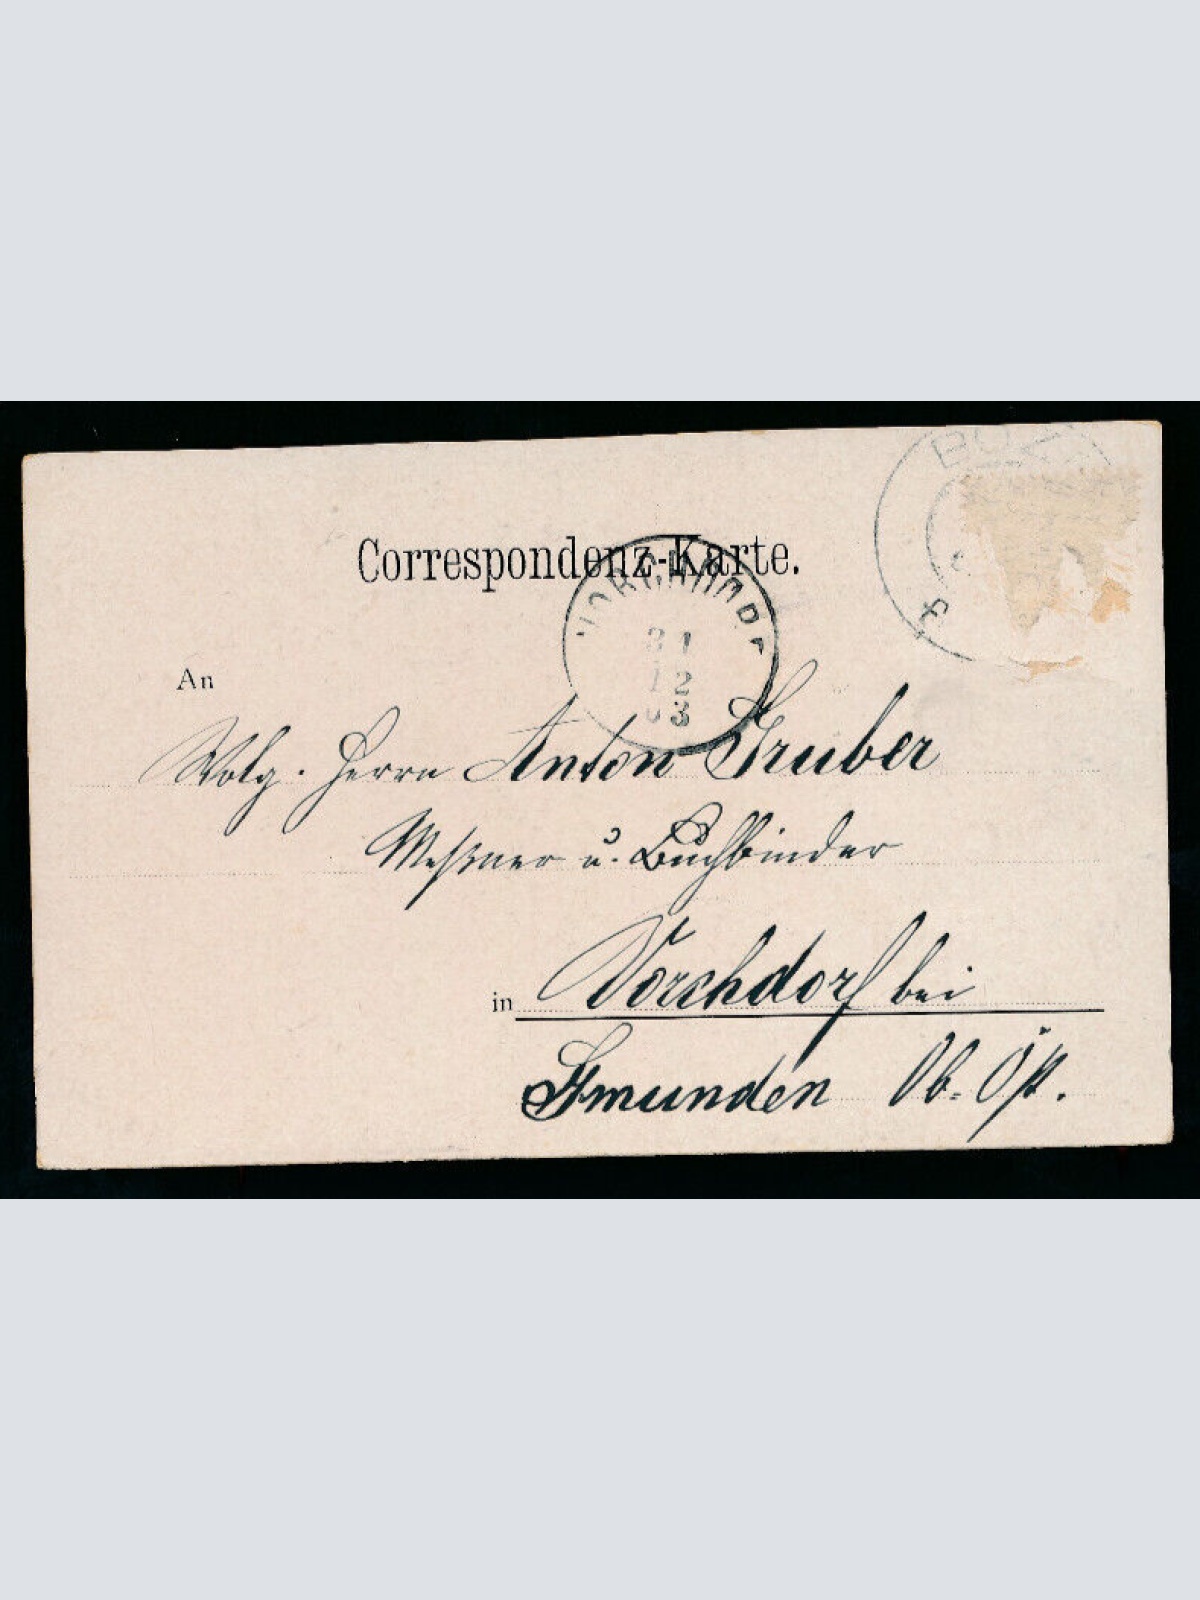 Correspondenz-Karte.
BOZ
VORCHDORF
31
12
03
An
Wolg. Herrn Anton Gruber
Meßner u. Buchbinder
in Vorchdorf bei
Gmunden Ob. Öst.